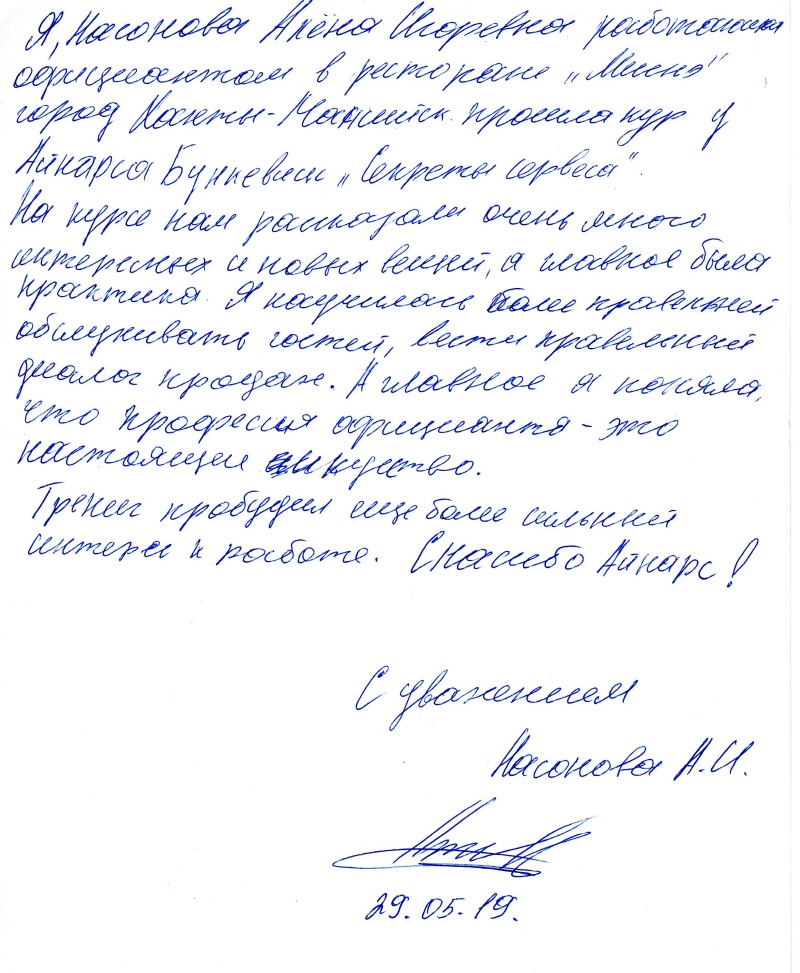 Я, Насонова Алёна Игоревна
официантом в ресторане „Мясо"
город Ханты-Мансийск. прошла кур у
Айнарса Бункевича „Секреты сервеса".
На курсе нам рассказали очень много
интересных и новых вещей, а главное была
практика. Я научилась более правельней
обслуживать гостей, вести правельный
диалог продаж. А главное я поняла,
что професия официанта - это
настоящее искуство.
Тренинг пробудил еще более сильный
интерес к работе. Спасибо Айнарс!
С уважением
Насонова А.И.
29.05.19.